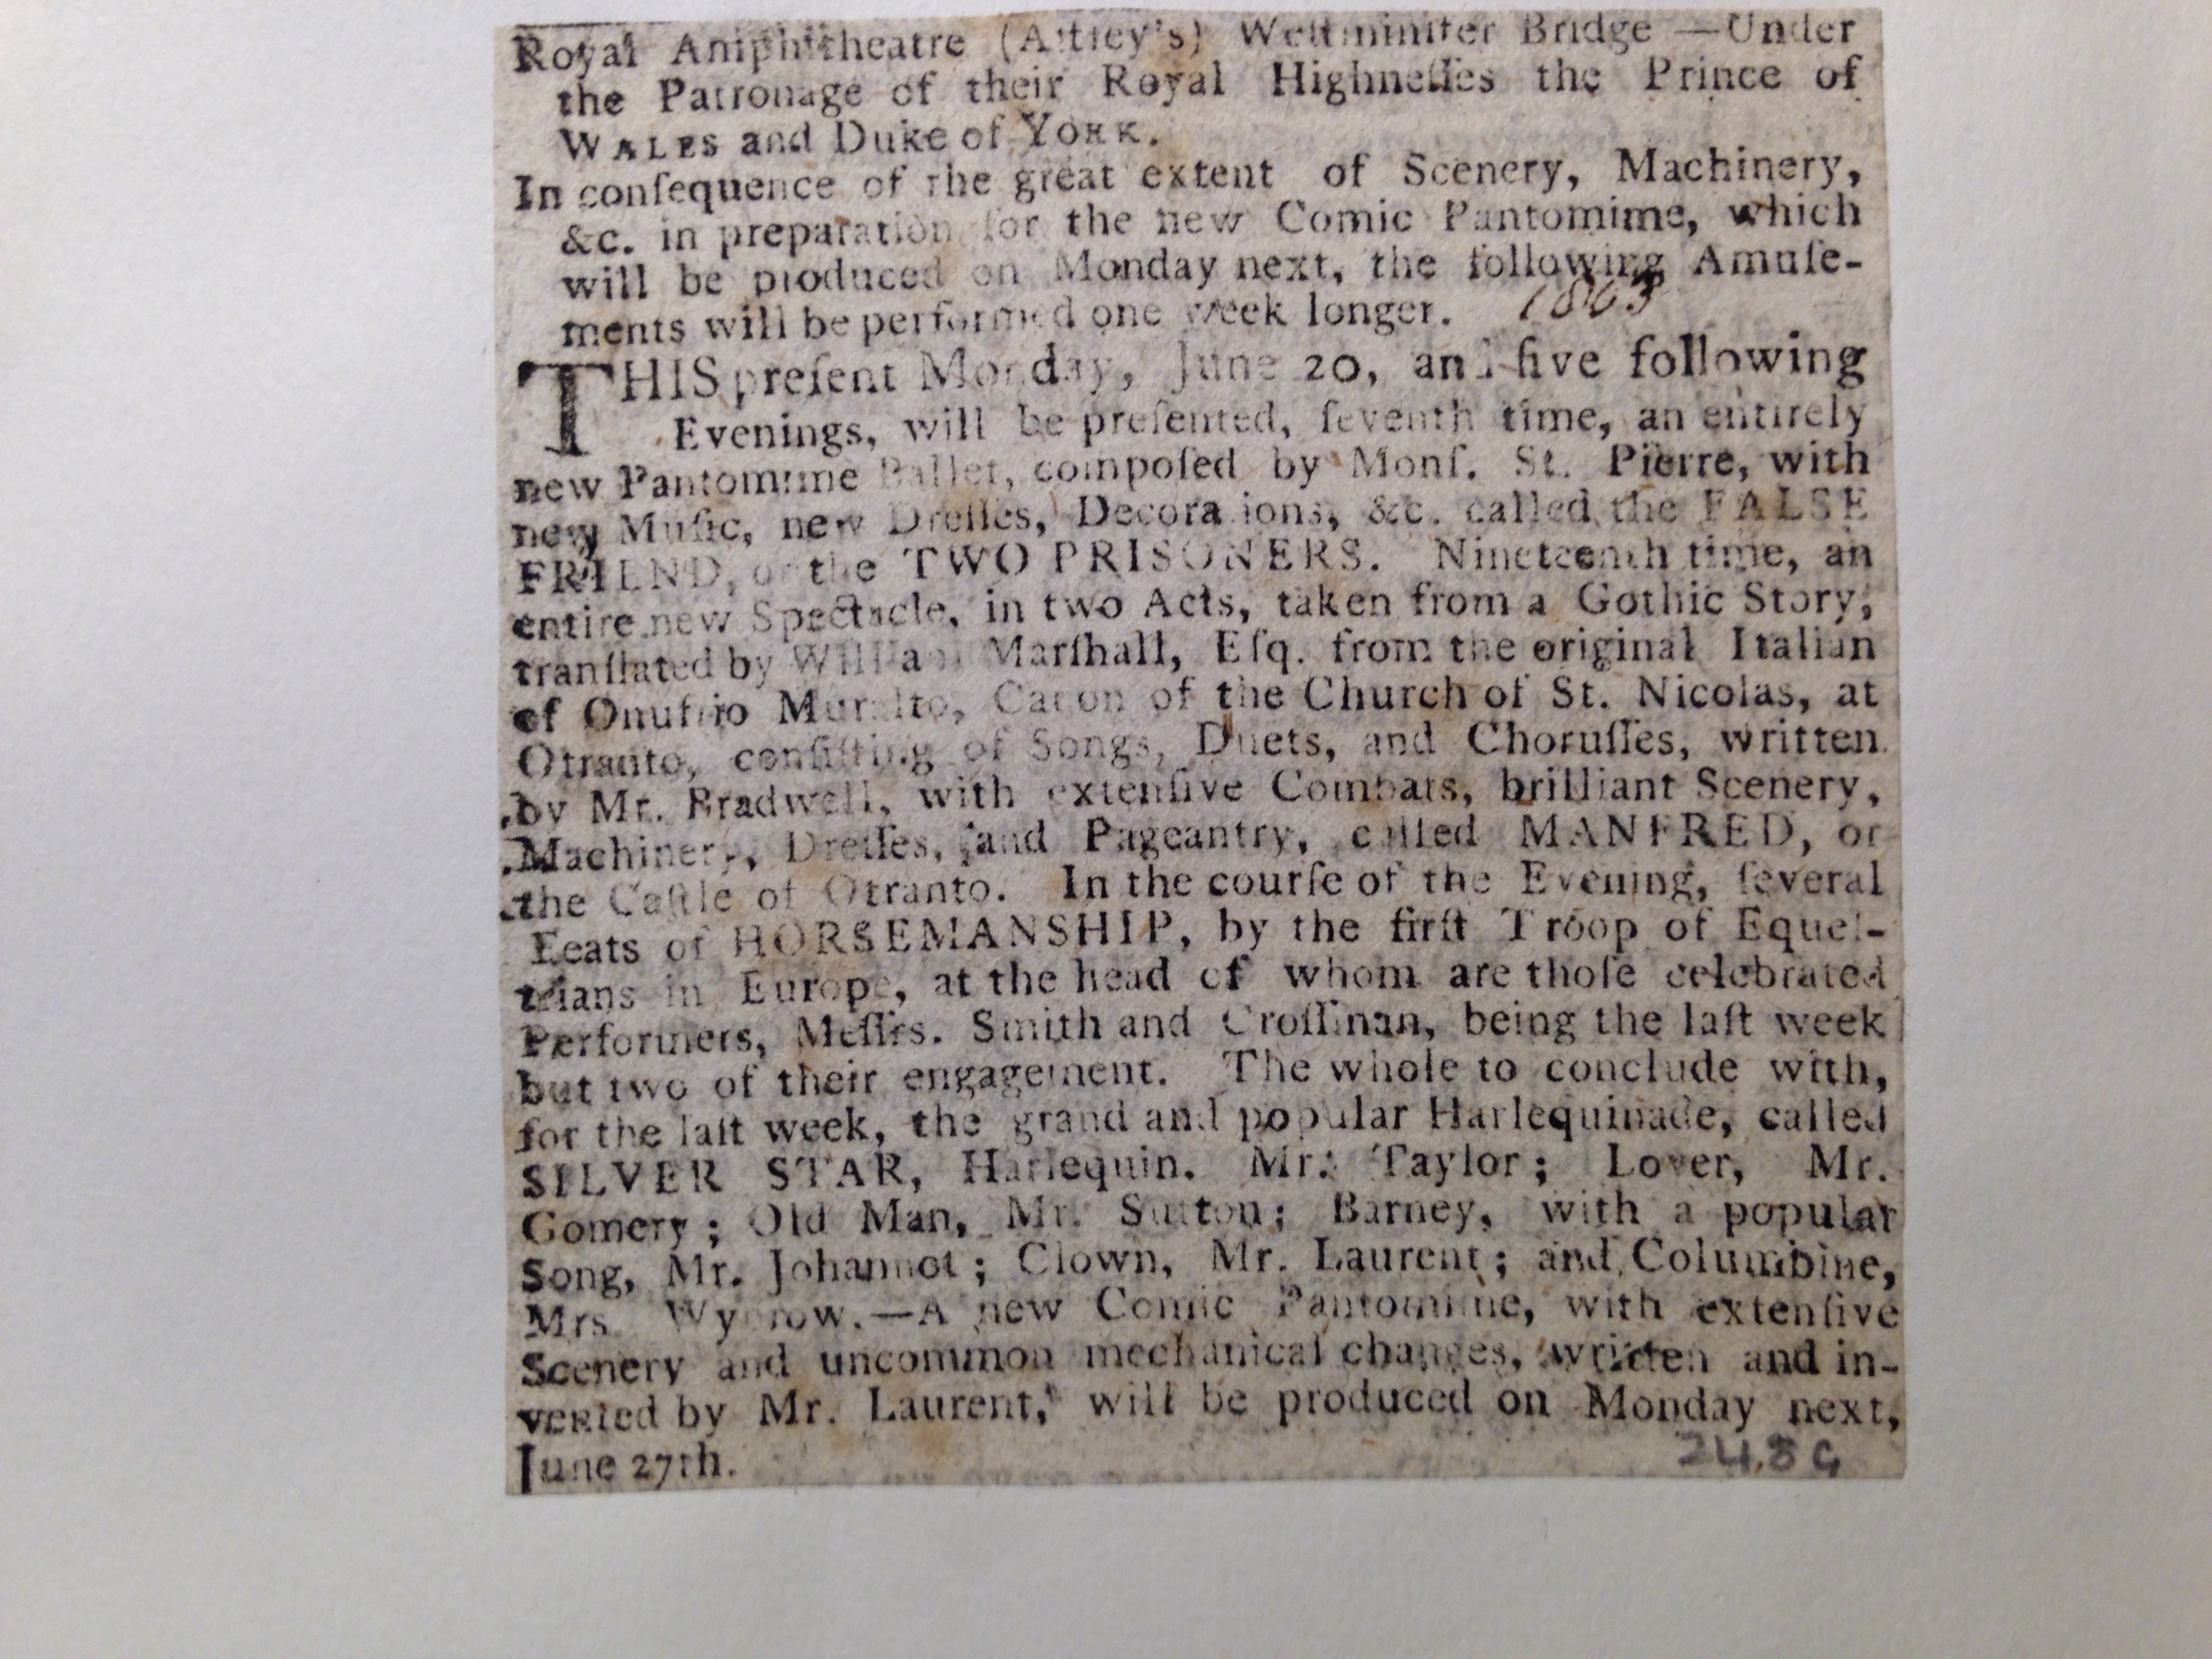 Royal Amphitheatre (Aſtley's) Weſtminſter Bridge —Under
the Patronage of their Royal Highneſſes the Prince of
WALES and Duke of YORK.
In conſequence of the great extent of Scenery, Machinery,
&c. in preparation for the new Comic Pantomime, which
will be produced on Monday next, the following Amuſe-
ments will be performed one week longer. 1803
THIS preſent Monday, June 20, and five following
Evenings, will be preſented, ſeventh time, an entirely
new Pantomime Ballet, compoſed by Monſ. St. Pierre, with
new Muſic, new Dreſſes, Decorations, &c. called the FALSE
FRIEND, or the TWO PRISONERS. Nineteenth time, an
entire new Spectacle, in two Acts, taken from a Gothic Story,
tranſlated by William Marſhall, Eſq. from the original Italian
of Onufrio Muralto, Canon of the Church of St. Nicolas, at
Otranto, conſiſting of Songs, Duets, and Choruſſes, written
by Mr. Bradwell, with extenſive Combats, brilliant Scenery,
Machinery, Dreſſes, and Pageantry, called MANFRED, or
the Caſtle of Otranto. In the courſe of the Evening, ſeveral
Feats of HORSEMANSHIP, by the firſt Troop of Equeſ-
trians in Europe, at the head of whom are thoſe celebrated
Performers, Meſſrs. Smith and Croſſman, being the laſt week
but two of their engagement. The whole to conclude with,
for the laſt week, the grand and popular Harlequinade, called
SILVER STAR, Harlequin, Mr. Taylor; Lover, Mr.
Gomery; Old Man, Mr. Sutton; Barney, with a popular
Song, Mr. Johannot; Clown, Mr. Laurent; and Columbine,
Mrs. Wybrow.—A new Comic Pantomime, with extenſive
Scenery and uncommon mechanical changes, written and in-
vented by Mr. Laurent, will be produced on Monday next,
June 27th. 24.8